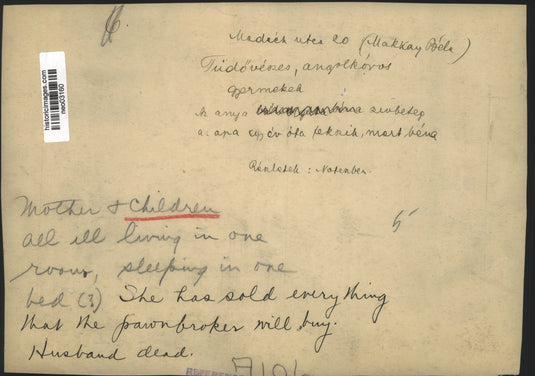 6.
Madách utca 20 (Makkay Béla)
Tüdővészes, angolkóros
gyermekek
Az anya szivbeteg
az apa egy év óta fekszik, mert béna
Részletek: November
historicimages.com
neo03160
Mother & Children
all ill living in one
room, sleeping in one
bed (3) She has sold everything
that the pawnbroker will buy.
Husband dead.
5